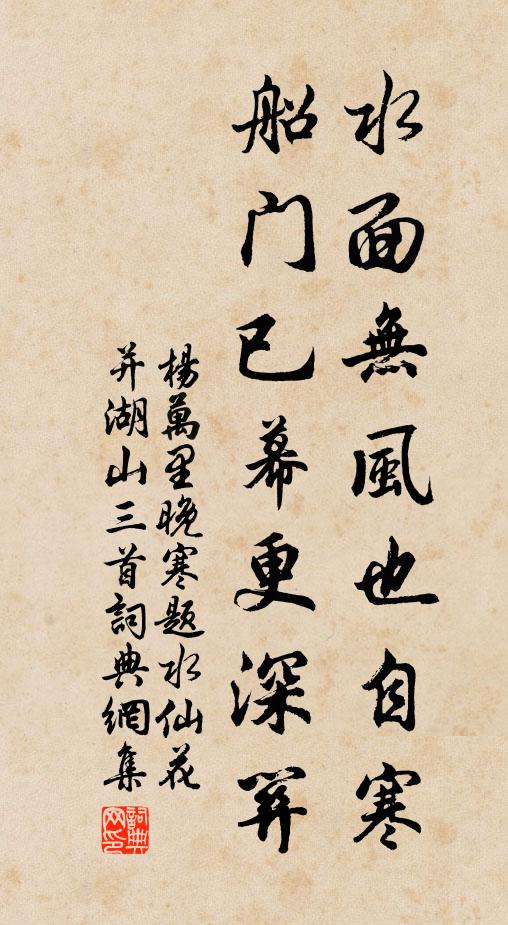 水面無風也自寒
船門已幕更深關
楊萬里晚寒題水仙花
并湖山三首詞典網集
詞典
网印